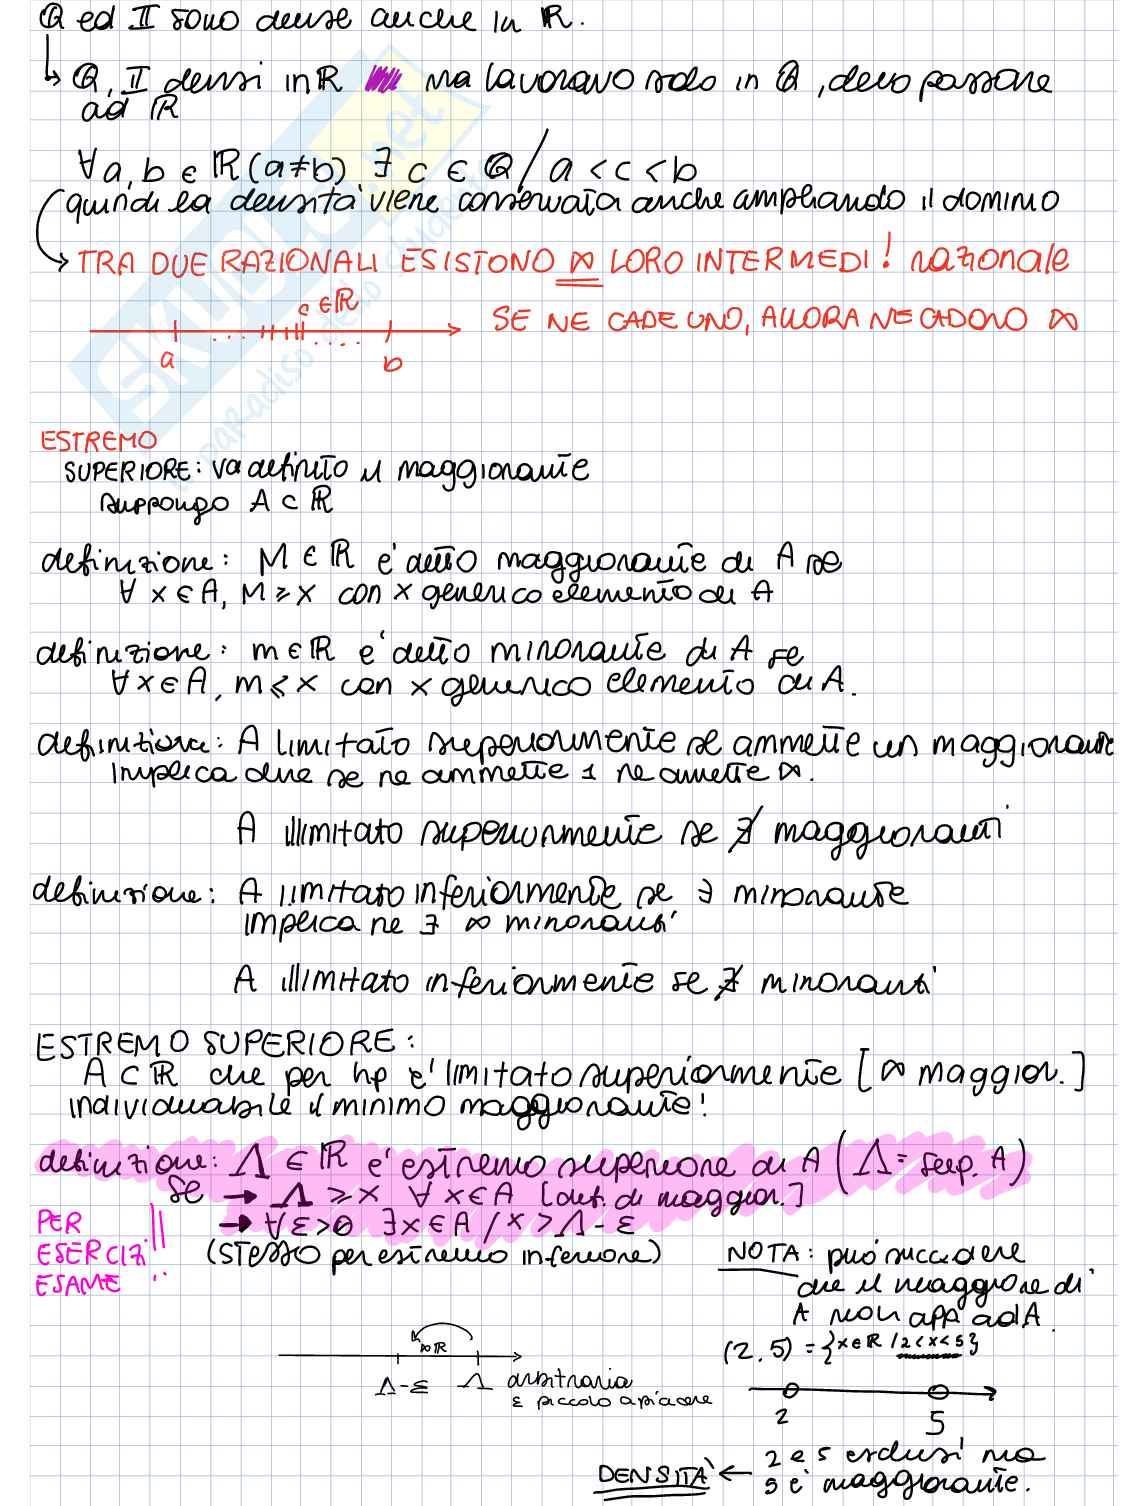 ℚ ed 𝕀 sono dense anche in ℝ.
↳ ℚ, 𝕀 densi in ℝ ma lavoravo solo in ℚ, devo passare
ad ℝ
∀ a, b ∈ ℝ (a≠b) ∃ c ∈ ℚ / a < c < b
quindi la densità viene conservata anche ampliando il dominio
→ TRA DUE RAZIONALI ESISTONO ∞ LORO INTERMEDI! razionale
c ∈ ℝ
SE NE CADE UNO, ALLORA NE CADONO ∞
a b
ESTREMO
SUPERIORE: va definito il maggiorante
suppongo A ⊂ ℝ
definizione: M ∈ ℝ e' detto maggiorante di A se
∀ x ∈ A, M ⩾ x con x generico elemento di A
definizione: m ∈ ℝ e' detto minorante di A se
∀ x ∈ A, m ⩽ x con x generico elemento di A.
definizione: A limitato superiormente se ammette un maggiorante
implica che se ne ammette 1 ne amette ∞.
A illimitato superiormente se ∄ maggioranti
definizione: A limitato inferiormente se ∃ minorante
implica ne ∃ ∞ minoranti
A illimitato inferiormente se ∄ minoranti
ESTREMO SUPERIORE:
A ⊂ ℝ che per hp e' limitato superiormente [∞ maggior.]
individuabile il minimo maggiorante!
definizione: Λ ∈ ℝ e' estremo superiore di A (Λ = sup. A)
se → Λ ⩾ x ∀ x ∈ A [def. di maggior.]
→ ∀ ε > 0 ∃ x ∈ A / x > Λ - ε
PER
ESERCIZI
ESAME !!
(STESSO per estremo inferiore)
NOTA: può succedere
che il maggiore di
A non app ad A.
(2,5) = {x ∈ ℝ / 2 < x < 5}
∞ ℝ
Λ-ε Λ arbitraria
ε piccolo a piacere
2 5
DENSITÀ ← 2 e 5 esclusi ma
5 e' maggiorante.
SKUOLA.net
il paradiso dello studente